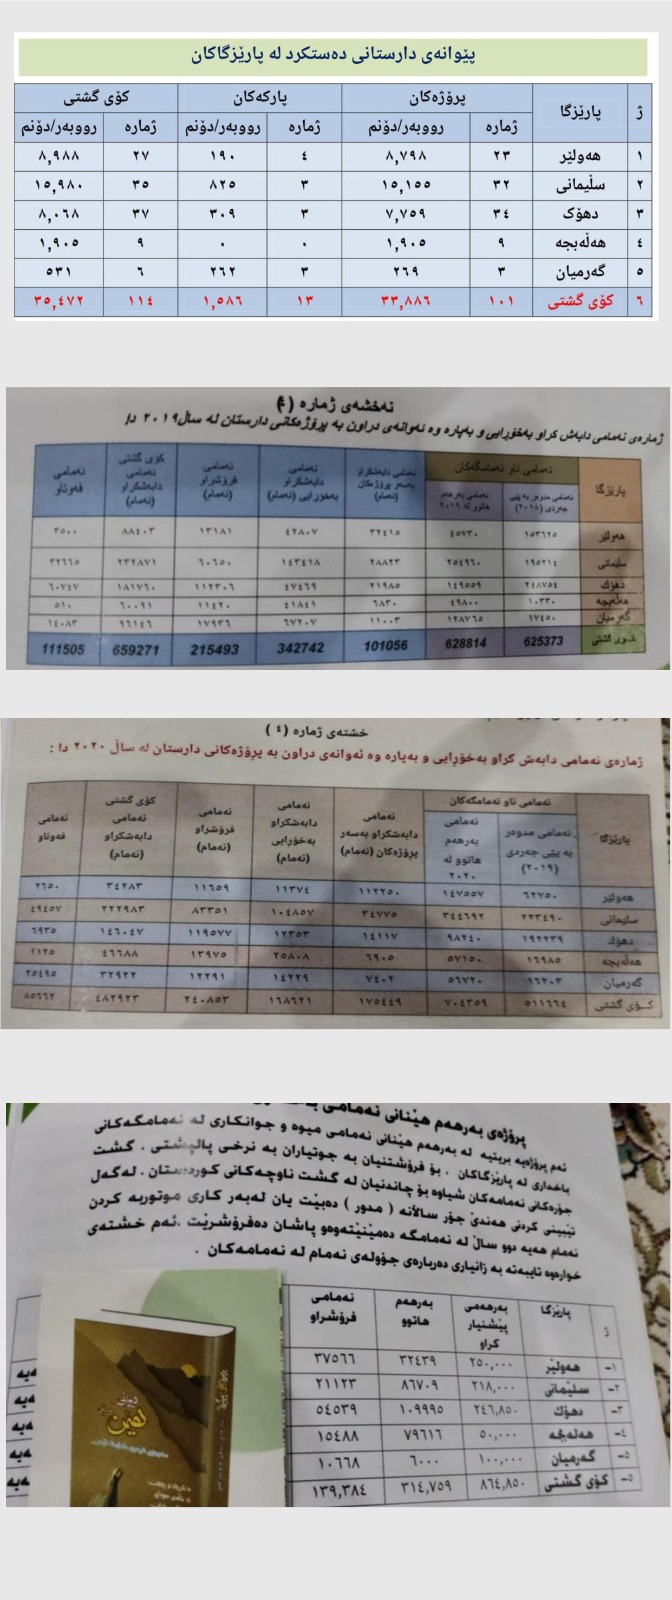 پێوانەی دارستانی دەستکرد لە پارێزگاکان
ژ پارێزگا پرۆژەکان پارکەکان کۆی گشتی
ژمارە رووبەر/دۆنم ژمارە رووبەر/دۆنم ژمارە رووبەر/دۆنم
١ هەولێر ٢٣ ٨,٧٩٨ ٤ ١٩٠ ٢٧ ٨,٩٨٨
٢ سلێمانی ٣٢ ١٥,١٥٥ ٣ ٨٢٥ ٣٥ ١٥,٩٨٠
٣ دهۆک ٣٤ ٧,٧٥٩ ٣ ٣٠٩ ٣٧ ٨,٠٦٨
٤ هەڵەبجە ٩ ١,٩٠٥ ٠ ٠ ٩ ١,٩٠٥
٥ گەرمیان ٣ ٢٦٩ ٣ ٢٦٢ ٦ ٥٣١
٦ کۆی گشتی ١٠١ ٣٣,٨٨٦ ١٣ ١,٥٨٦ ١١٤ ٣٥,٤٧٢
نەخشەی ژمارە (٤)
ژمارەی نەمامی دابەش کراو بەخۆرایی و بەپارە وە ئەوانەی دراون بە پرۆژەکانی دارستان لە ساڵ ٢٠١٩ دا
پارێزگا نەمامی ناو نەمامگەکان نەمامی دابەشکراو بەسەر پرۆژەکان (نەمام) نەمامی دابەشکراو بەخۆرایی (نەمام) نەمامی فرۆشراو (نەمام) کۆی گشتی نەمامی دابەشکراو (نەمام) نەمامی فەوتاو
نەمامی مدوەر بە پێی جەردی (٢٠١٨) نەمامی بەرهەم هاتوو لە ٢٠١٩
هەولێر ١٥٣٦٢٥ ٤٥٧٣٠ ٣٢٤١٥ ٤٢٨٠٧ ١٣١٨١ ٨٨٤٠٣ ٣٥٠٠
سلێمانی ١٩٥٢١٤ ٢٥٤٩٦٠ ٢٨٨٢٣ ١٤٣٤١٨ ٦٠٦٥٠ ٢٣٢٨٧١ ٣٢٦٦٥
دهۆك ٢٤٨٧٥٤ ١٤٩٥٥٩ ٢١٩٨٥ ٤٧٤٦٩ ١١٢٣٠٦ ١٨١٧٦٠ ٦٠٧٤٧
هەڵەبجە ١٠٣٣٠ ٤٩٨٠٠ ٦٨٣٠ ٤١٨٤١ ١١٤٢٠ ٦٠٠٩١ ٥١٠
گەرمیان ١٧٤٥٠ ١٢٨٧٦٥ ١١٠٠٣ ٦٧٢٠٧ ١٧٩٣٦ ٩٦١٤٦ ١٤٠٨٣
کۆی گشتی 625373 628814 101056 342742 215493 659271 111505
خشتەی ژمارە (٤)
ژمارەی نەمامی دابەش کراو بەخۆڕایی و بەپارە وە ئەوانەی دراون بە پرۆژەکانی دارستان لە ساڵ ٢٠٢٠ دا :
پارێزگا نەمامی ناو نەمامگەکان نەمامی دابەشکراو بەسەر پرۆژەکان (نەمام) نەمامی دابەشکراو بەخۆڕایی (نەمام) نەمامی فرۆشراو (نەمام) کۆی گشتی نەمامی دابەشکراو (نەمام) نەمامی فەوتاو
نەمامی مدوەر بە پێی جەردی (٢٠١٩) نەمامی بەرهەم هاتوو لە ٢٠٢٠
هەولێر ٦٢٧٥٠ ١٤٧٥٥٧ ١١٢٢٥٠ ١١٣٧٤ ١١٦٥٩ ٣٤٢٨٣ ٢٦٥٠
سلێمانی ٢٢٣٤٩٠ ٣٤٤٦٩٢ ٣٤٧٧٥ ١٠٤٨٥٧ ٨٣٣٥١ ٢٢٢٩٨٣ ٤٩٤٥٧
دهۆك ١٩٢٢٣٩ ٩٨٢٤٠ ١٤١١٧ ١٢٣٥٣ ١١٩٥٧٧ ١٤٦٠٤٧ ٦٩٣٥
هەڵەبجە ١٦٩٨٥ ٥٧١٥٠ ٦٩٠٥ ٢٥٨٠٨ ١٣٩٧٥ ٤٦٦٨٨ ١١٢٥
گەرمیان ١٦٢٠٣ ٥٦٧٢٠ ٧٤٠٢ ١٤٢٢٩ ١٢٢٩١ ٣٢٩٢٢ ٢٥٤٩٥
کـۆی گشتی ٥١١٦٦٤ ٧٠٤٣٥٩ ١٧٥٤٤٩ ١٦٨٦٢١ ٢٤٠٨٥٣ ٤٨٢٩٢٣ ٨٥٦٦٢
پرۆژەی بەرهەم هێنانی نەمامی
ئەم پرۆژەیە بریتیە لە بەرهەم هێنانی نەمامی میوە و جوانکاری لە نەمامگەکانی
باخداری لە پارێزگاکان . بۆ فرۆشتنیان بە جوتیاران بە نرخی پالپشتی . گشت
جۆرەکانی نەمامەکان شیاوە بۆ چاندنیان لە گشت ناوچەکانی کوردستان . لەگەل
تێبینی کردنی هەندێ جۆر ساڵانە ( مدور ) دەبێت یان لەبەر کاری موتوربە کردن
نەمام هەیە دوو ساڵ لە نەمامگە دەمێنێتەوەو پاشان دەفرۆشرێت .ئەم خشتەی
خوارەوە تایبەتە بە زانیاری دەربارەی جۆولەی نەمام لە نەمامەکان .
ژ پارێزگا بەرهەمی پێشنیار کراو بەرهەم هاتوو نەمامی فرۆشراو
١- هەولێر ٢٥٠,٠٠٠ ٣٢٤٣٩ ٣٧٥٦٦
٢- سلێمانی ٢١٨,٠٠٠ ٨٦٧٠٩ ٢١١٢٣
٣- دهۆك ٢٤٦,٨٥٠ ١٠٩٩٩٥ ٥٤٥٣٩
٤- هەڵەبجە ٥٠,٠٠٠ ٧٩٦١٦ ١٥٤٨٨
٥- گەرمیان ١٠٠,٠٠٠ ٦٠٠٠ ١٠٦٦٨
٥- کۆی گشتی ٨٦٤,٨٥٠ ٣١٤,٧٥٩ ١٣٩,٣٨٤